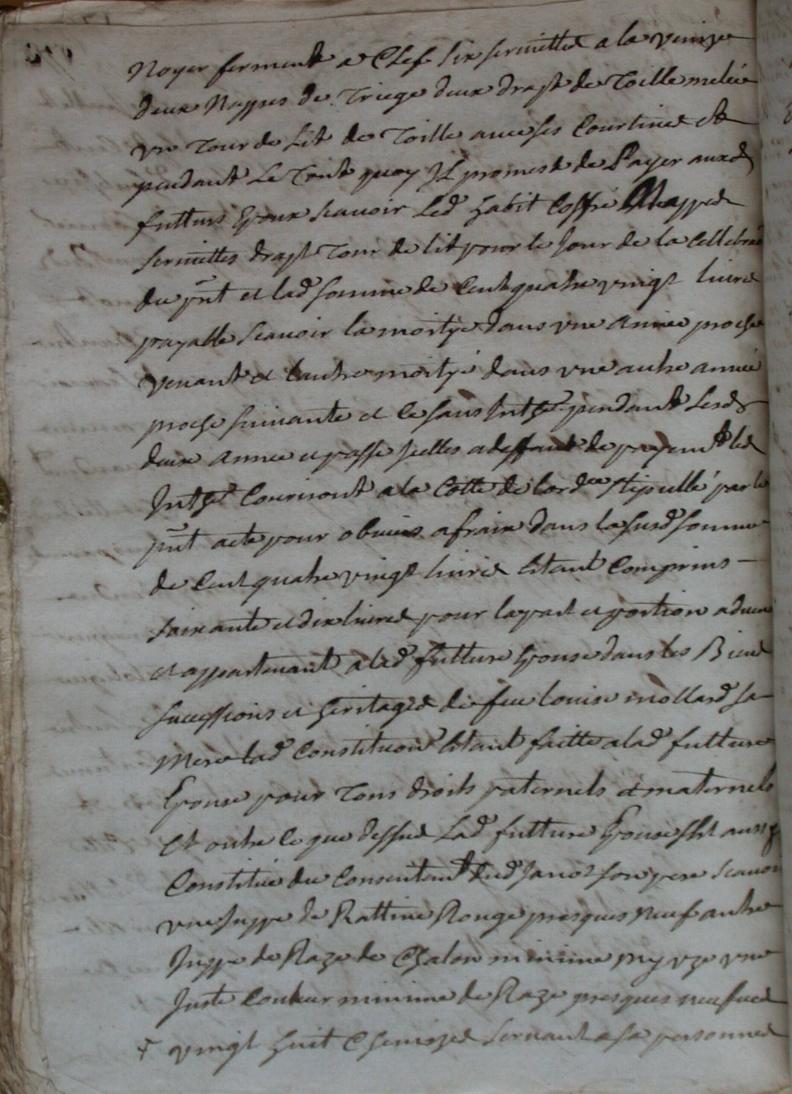 Noyer fermente a Clef six serviettes a la venize
deux Nappes de Triege deux draps de Toille melée
un Tour de Lit de Toille avec ses Courtines et
pendant Le Tout quoy Il promest de payer auxd
futturs Epoux scavoir Led habit Coffre Nappes
serviettes draps Tour de lit pour le Jour de la Cellebraõn
du pñt et lad somme de Cent quatre vingt livres
payable scavoir la moitye dans une année proche
venant et l'autre moityé dans une autre année
proche suivante et Ce sans Intest pendant Lesd
deux année et passé Icelles a deffaut de payemt les
Intest Courriront a la Cotte de lordce stipullé par le
pñt acte pour obvier a fraix dans la susd somme
de Cent quatre vingt livres Estant Comprins
soixante et dix livres pour la part et portion advenue
et appartenant a lad futture Epouse dans les Biens
successions et heritages de feue louise mollard sa
Mere lad Constitution Estant faitte a lad futture
Epouse pour Tous droits paternels et maternels
Et outre ce que dessus Lad futture Epouse sest aussy
Constituée du Consentemt dud Janot son pere scavoir
une Juppe de Rattine Rouge presques neuf autre
Juppe de Raze de Chalon minime my uze une
Juste Couleur minime de Raze presques neufve
vingt huit Chemizes servant a sa personne